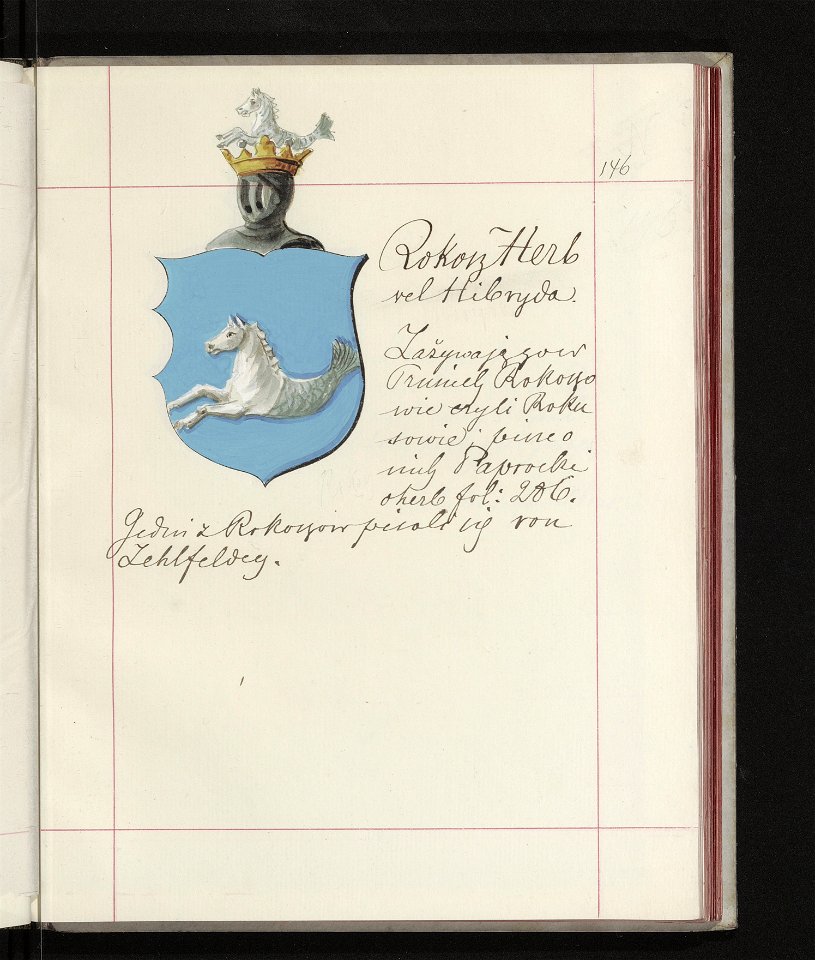 146
Rokosz Herb
vel Hibryda.
Zażywają go w
Prusiech Rokoszo
wie czyli Roku
sowie; pisze o
nich Paprocki
o herb fol: 206.
Jedni z Rokoszow pisali się von
Zehlfeldey.